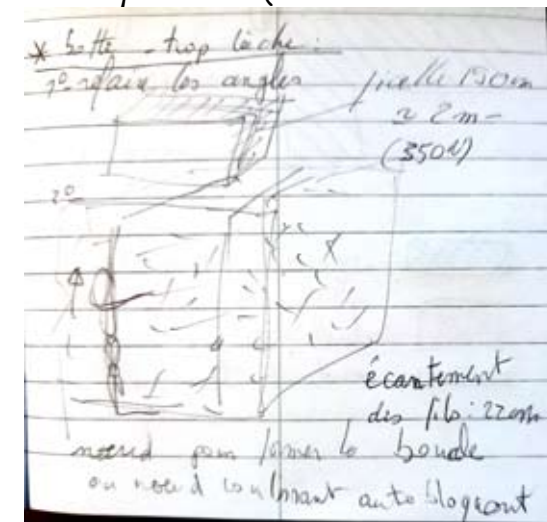 * botte trop lâche :
1° refaire les angles
ficelle 190cm
≈ 2m
(350N)
2°
écartement
des fils : 22cm
noeud pour former la boucle
ou noeud coulissant autobloquant